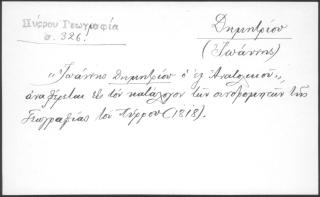 Πύρρου Γεωγραφία
σ. 326.
Δημητρίου
(Ἰωάννης)
"Ἰωάννης Δημητρίου ὁ ἐξ Ἀνατολικοῦ",
ἀναφέρεται εἰς τὸν κατάλογον τῶν συνδρομητῶν τῆς
Γεωγραφίας τοῦ Πύρρου (1818).